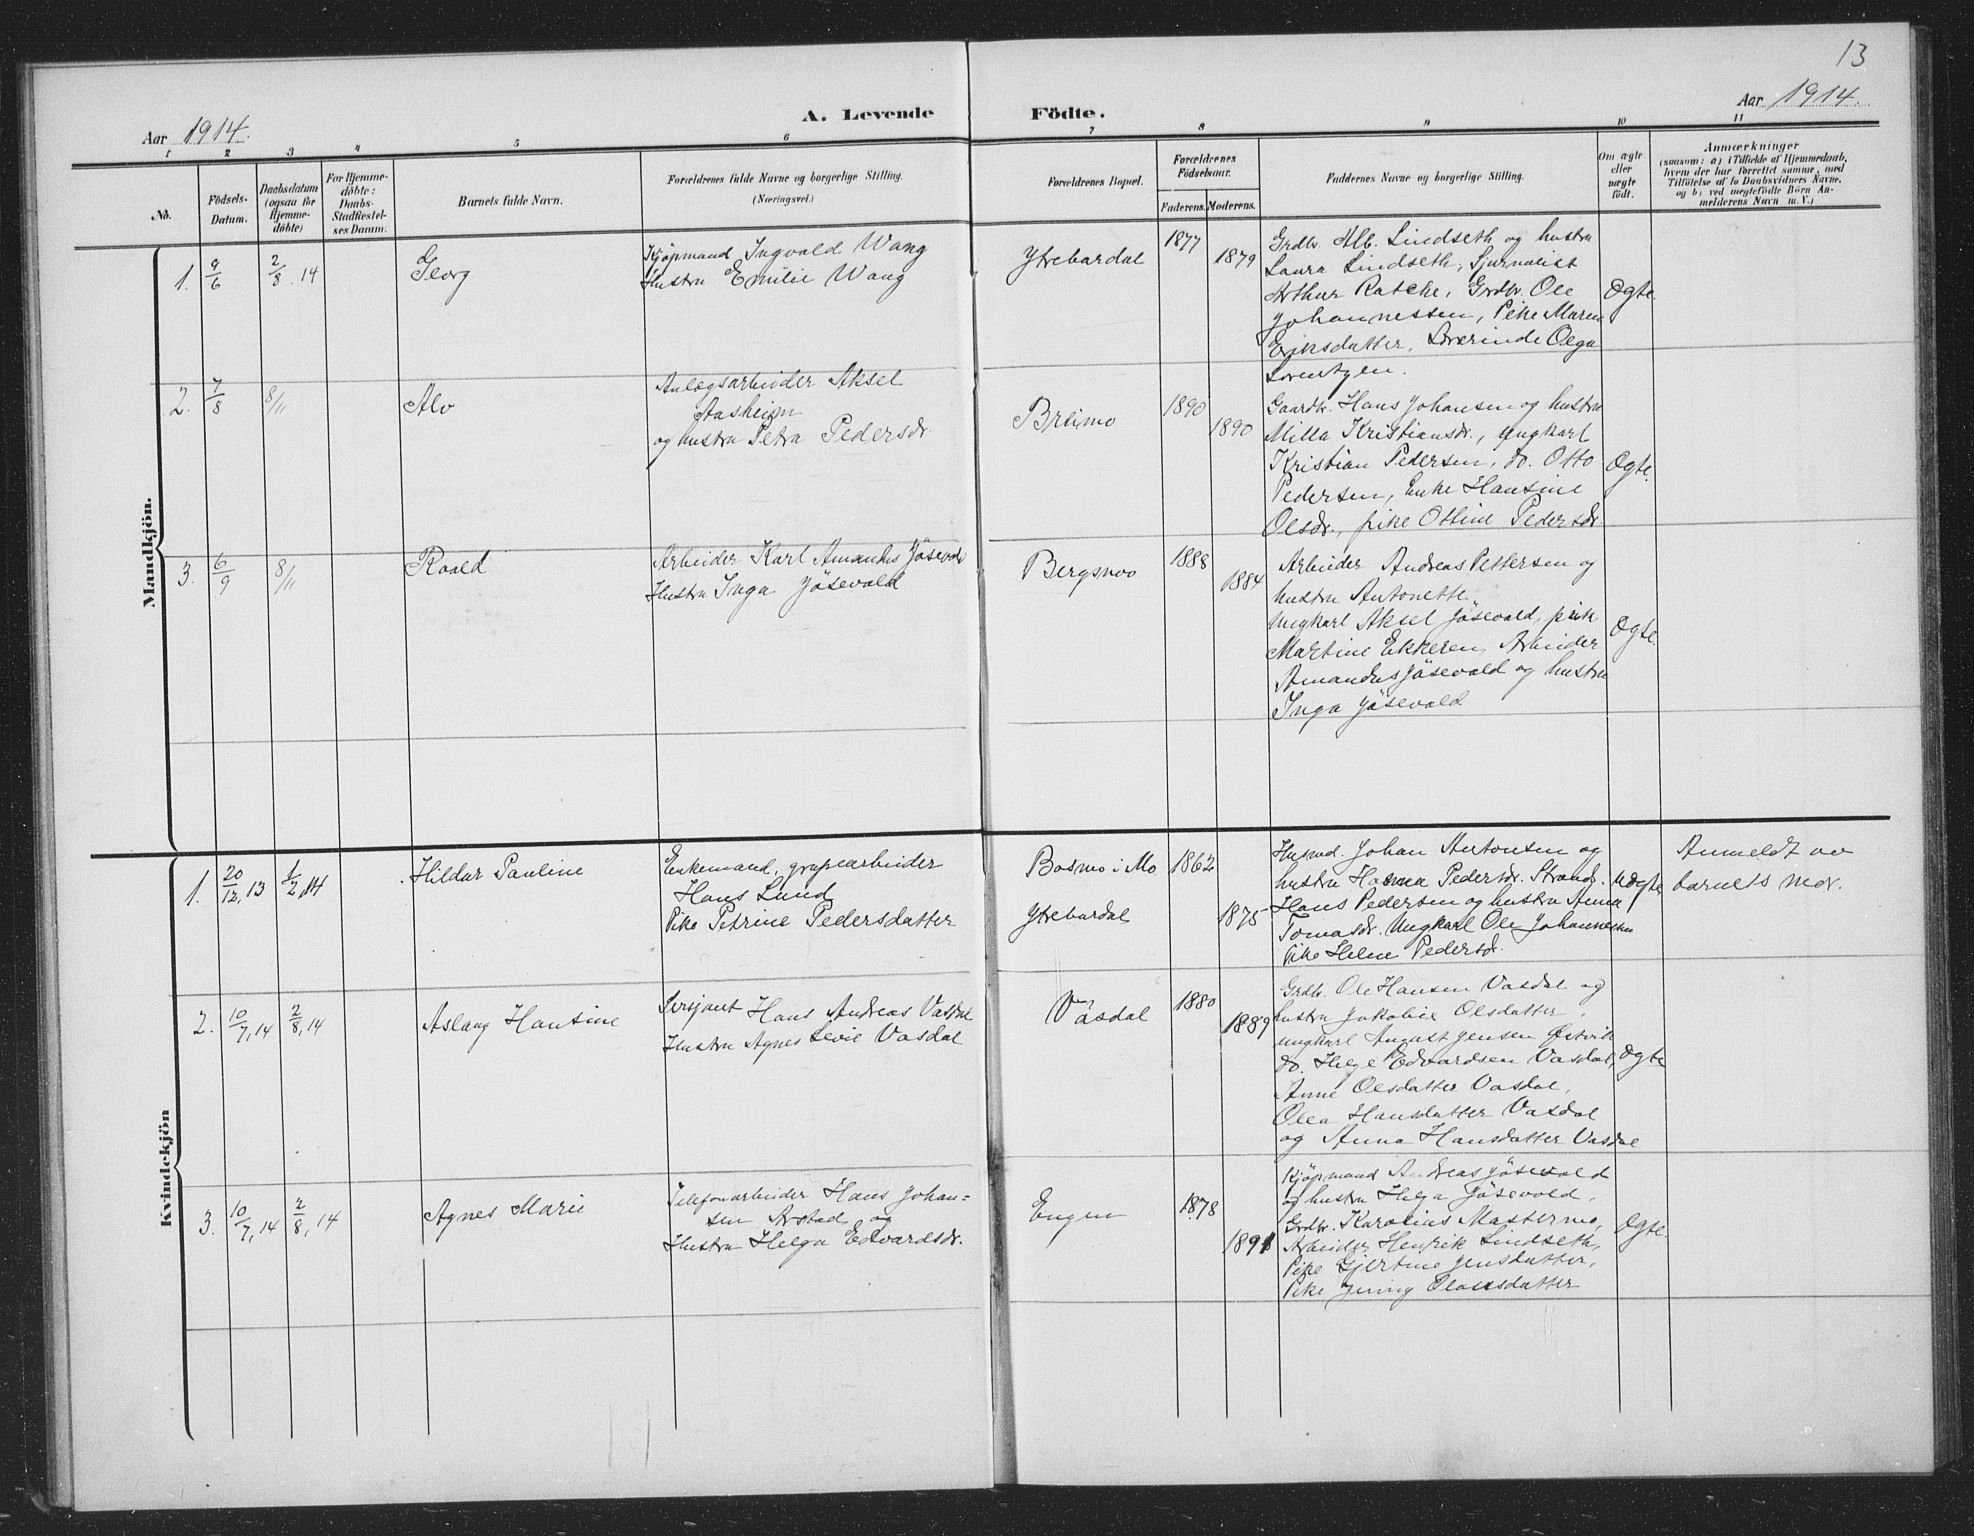 13
Aar 1914.
A. Levende Födte.
Aar 1914.
1 2 3 4 5 6 7 8 9 10 11
No.
Födsels-
Datum.
Daabsdatum
(ogsaa for
Hjemme-
döbte)
For Hjemme-
döbte:
Daabs-
Stadfæstel-
ses Datum.
Barnets fulde Navn.
Forældrenes fulde Navne og borgerlige Stilling.
(Næringsvei.)
Forældrenes Bopæl.
Forældrenes
Födselsaar.
Faderens. Moderens.
Faddernes Navne og borgerlige Stilling.
Om ægte
eller
uægte
födt.
Anmærkninger
(saasom: a) i Tilfælde af Hjemmedaab,
hvem der har forrettet samme, med
Tilföielse af to Daabsvidners Navne,
og b) ved uægtefödte Börn An-
melderens Navn m. V.)
Mandkjön.
1. 9/6 2/8 . 14 Georg
Kjøpmand Ingvald Wang
Hustru Emilie Wang
Ytrebardal 1877 1879
Grdbr. Alb. Lindseth og hustru
Laura Lindseth, Sjurnalist
Arthur Ratche, Grdbr. Ole
Johannessen, Pike Maren
Eriksdatter, Lærerinde Olga
Lorentzen.
Ægte.
2. 7/8 8/11 Alv
Anlægsarbeider Aksel
Aasheim
og hustru Petra Pedersdr.
Breimo 1890 1890
Gaardbr. Hans Johansen og hustru
Milla Kristiansdr., Ungkarl
Kristian Pedersen, do. Otto
Pedersen, Enke Hansine
Olsdr., pike Ottine Pedersdr.
Ægte.
3. 6/9 8/11 Roald
Arbeider Karl Amandus Jösevold
Hustru Inga Jösevold
Bergsnov 1888 1884
Arbeider Andreas Pettersen og
hustru Antonette
Ungkarl Aksel Jösevold, pike
Martine Ekkeren, Arbeider
Amandus Jösevold og hustru
Inga Jösevold
Ægte.
Kvindekjön
1. 20/12, 13 1/2, 14 Hildur Pauline
Enkemand, grupearbeider
Hans Lund
Pike Petrine Pedersdatter
Bosmo i Mo 1862
Ytrebardal 1875
Husmd. Johan Antonsen og
hustru Hanna Pedersdr. Strand.
Hans Pedersen og hustru Anna
Tomasdr. Ungkarl Ole Johannessen
Pike Helene Pedersdr.
Uægte
Anmeldt av
barnets mor.
2. 10/7, 14 2/8, 14 Aslaug Hansine
Sersjant Hans Andreas Vasdal
Hustru Agnes Levie Vasdal
Våsdal 1880 1889
Grdbr. Ole Hansen Vasdal og
hustru Jakobie Olsdatter,
ungkarl August Jensen Østvik
do. Helge Edvardsen Vasdal,
Anne Olsdatter Vasdal,
Olea Hansdatter Vasdal
og Anna Hansdatter Vasdal
Ægte
3. 10/7, 14 2/8, 14 Agnes Marie
Telefonarbeider Hans Johan=
sen Arstad og
Hustru Helga Edvardsdr.
Engen 1878 1891
Kjøpmand Andreas Jösevold
og hustru Helga Jösevold,
Grdbr. Karolius Mastermo,
Arbeider Henrik Lindseth,
Pike Gjertine Jensdatter,
Pike Jenny Olausdatter
Ægte.